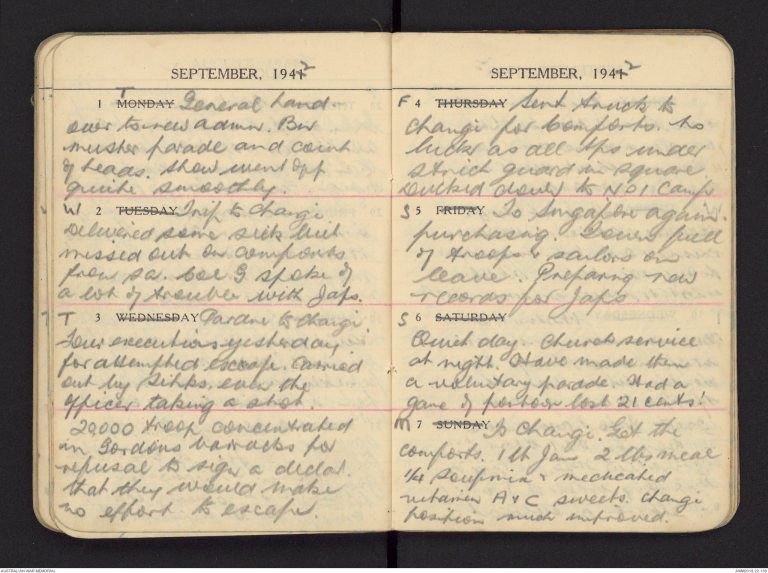 SEPTEMBER, 1942
T 1 MONDAY General hand-
over to new admin. Big
muster parade and count
of heads. Show went off
quite smoothly.
W 2 TUESDAY Trip to Changi
Delivered some sick but
missed out on comforts
from Sa. Col G spoke of
a lot of trouble with Japs.
T 3 WEDNESDAY Pardne to Changi
Four executions yesterday
for attempted escape. Carried
out by Sikhs, even the
officer taking a shot.
20,000 troop concentrated
in Gordons barracks for
refusal to sign a declar.
that they would make
no effort to escape.
SEPTEMBER, 1942
F 4 THURSDAY Sent truck to
Changi for comforts. No
luck as all tps under
strict guard in square
ducked down to No 1 Camp
S 5 FRIDAY To Singapore again
purchasing. Town full
of troops & sailors on
leave. Preparing new
records for Japs
S 6 SATURDAY
Quiet day. Church service
at night. Have made them
a voluntary parade. Had a
game of lost 21 cents!
M 7 SUNDAY To Changi. Get the
comforts. 1 lb Jam 2 lbs meal
1/4 soupmix & medicated
vitamin A & C sweets. Changi
position much improved.
AUSTRALIAN WAR MEMORIAL